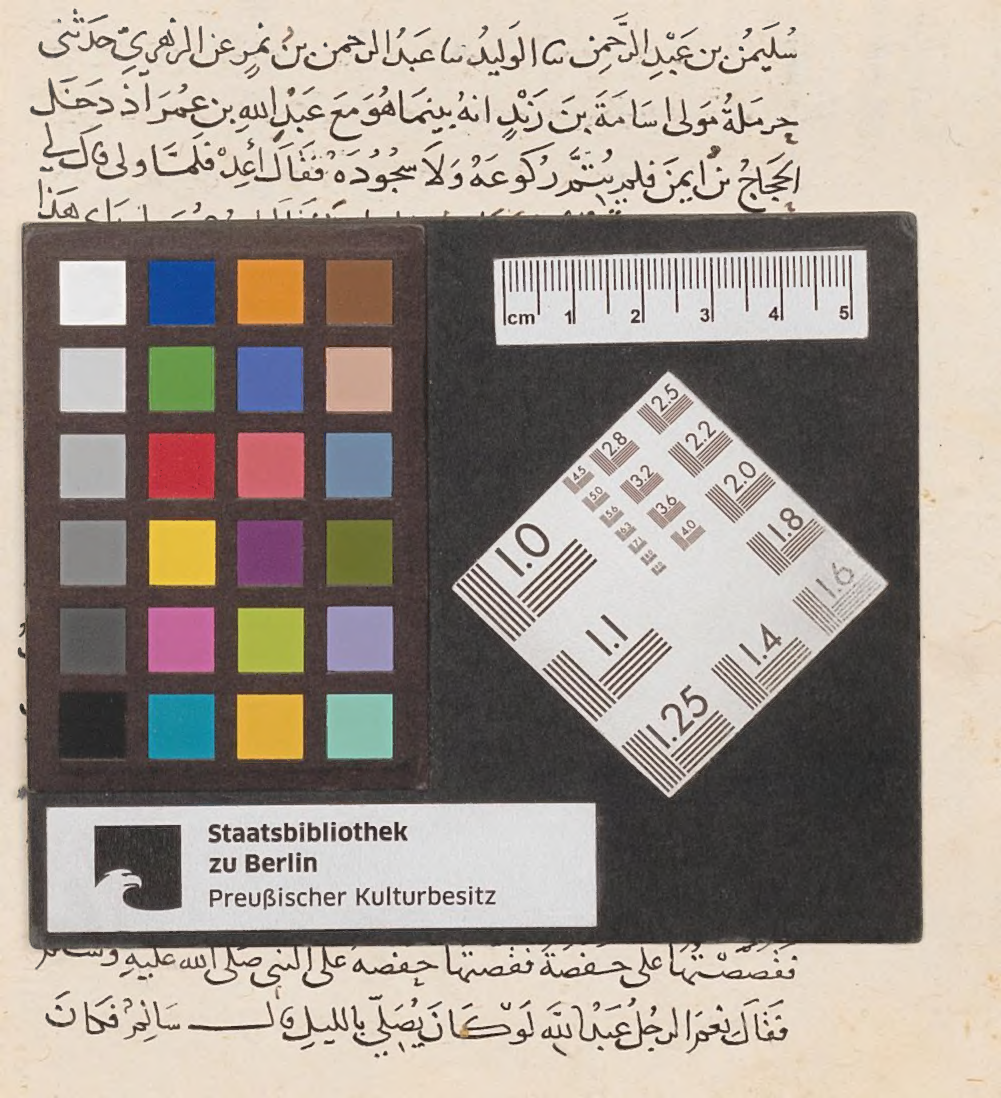 سُلَيمٰنُ بن عَبْدِ الرَّحمٰنِ سا الوَليدُ سا عَبدُ الرحمن بنُ نمِرٍ عن الزهريّ حَدَّثني
حرمَلةُ مَولى اسَامَةَ بنَ زَيْدٍ انهُ بينمَا هُوَ مَعَ عَبْدِ اللهِ بن عمُرَ اذ دَخَل
الحَجاجُ بنُ ايمنَ فلم يُتمَّ رُكوعَهُ وَلَا سجُودَهُ فقَالَ أعِدْ فلَمّا ولى قال لي
هَذا
cm 1 2 3 4 5
2.5
2.8 2.2
4.5 3.2 2.0
5.0 3.6 1.8
5.6 4.0 1.6
6.3
7.1
1.0
1.1 1.4
1.25
Staatsbibliothek
zu Berlin
Preußischer Kulturbesitz
فَقَصَصْتُهَا على حَفصَةَ فقَصّتها حفصة على النبى صَلى الله عليهِ وسَلم
فقَالَ نعمَ الرجُلُ عَبدُ اللهِ لَوْ كَانَ يُصَلّي بالليلِ قال سَالِمٌ فكانَ